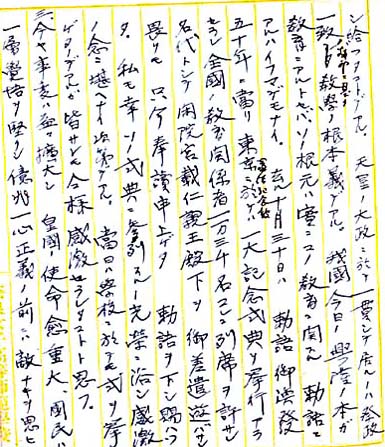 ン給フタコトデアル。天皇ノ大政ニ於テ一貫シテ居ルハ祭政
一致ト政教ノ根本義デアル。我國今日ノ興隆ノ本ガ
教育ニアルトセバソノ根元ハ實ニコノ教育ニ関スル勅語ニ
アルハイフマデモナイ。去ル十月三十日ハ勅語御渙發
五十年ニ當リ東京ニ於テ一大記念式典ヲ挙行アラ
セラレ全國ノ教育関係者一万三千名コレニ列席ヲ許サレ
名代トシテ閑院宮載仁親王殿下ヲ御差遣遊バサレ
畏クモ只今奉讀申上ゲタ勅語ヲ下シ賜ハツ
タ。私モ幸ソノ式典ニ参列スルノ光栄ニ浴シ感激
ノ念ニ堪ヘナイ次第デアル。當日ハ学校ニ於テモ式ヲ挙
ゲタノデアルガ皆サンモ今様感激セラレタコトト思フ。
三、今ヤ事変ハ益々擴大シ皇國ノ使命愈重大、國民ハ
一層覺悟ヲ堅クシ億兆一心正義ノ前ニハ敵ナキヲ思ヒ